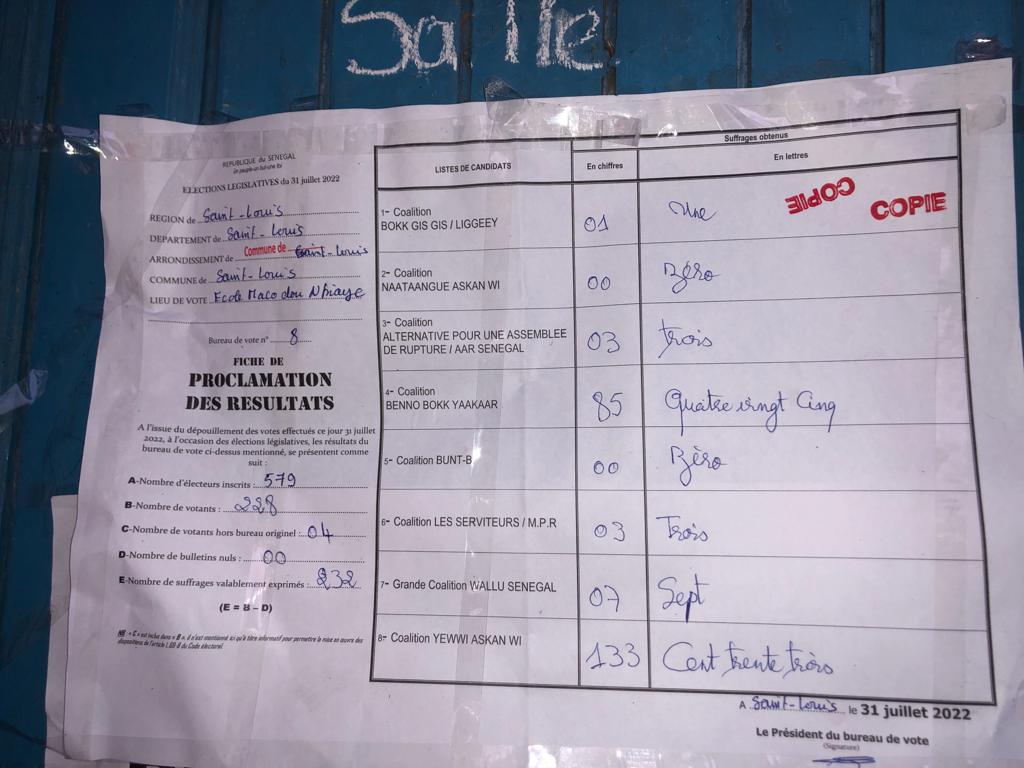 Salle
REPUBLIQUE du SENEGAL
Un peuple-un but-une foi
ELECTIONS LEGISLATIVES du 31 juillet 2022
REGION de Saint-Louis
DEPARTEMENT de Saint-Louis
ARRONDISSEMENT de Commune de Saint-Louis
COMMUNE de Saint-Louis
LIEU DE VOTE Ecole Macodou Ndiaye
Bureau de vote n° 8
FICHE DE
PROCLAMATION
DES RESULTATS
A l'issue du dépouillement des votes effectués ce jour 31 juillet
2022, à l'occasion des élections législatives, les résultats du
bureau de vote ci-dessus mentionné, se présentent comme
suit :
A-Nombre d'électeurs inscrits : 579
B-Nombre de votants : 228
C-Nombre de votants hors bureau originel : 04
D-Nombre de bulletins nuls : 00
E-Nombre de suffrages valablement exprimés : 232
(E = B – D)
NB : « C » est inclus dans « B », il n'est mentionné ici qu'à titre informatif pour permettre la mise en œuvre des
dispositions de l'article L.69-8 du Code électoral
LISTES DE CANDIDATS
Suffrages obtenus
En chiffres
En lettres
COPIE
COPIE
1- Coalition
BOKK GIS GIS / LIGGEEY
01
Une
2- Coalition
NAATAANGUE ASKAN WI
00
Zéro
3- Coalition
ALTERNATIVE POUR UNE ASSEMBLEE
DE RUPTURE / AAR SENEGAL
03
trois
4- Coalition
BENNO BOKK YAAKAAR
85
Quatre vingt Cinq
5- Coalition BUNT-B
00
Zéro
6- Coalition LES SERVITEURS / M.P.R
03
Trois
7- Grande Coalition WALLU SENEGAL
07
Sept
8- Coalition YEWWI ASKAN WI
133
Cent trente trois
A Saint-Louis le 31 juillet 2022
Le Président du bureau de vote
(Signature)